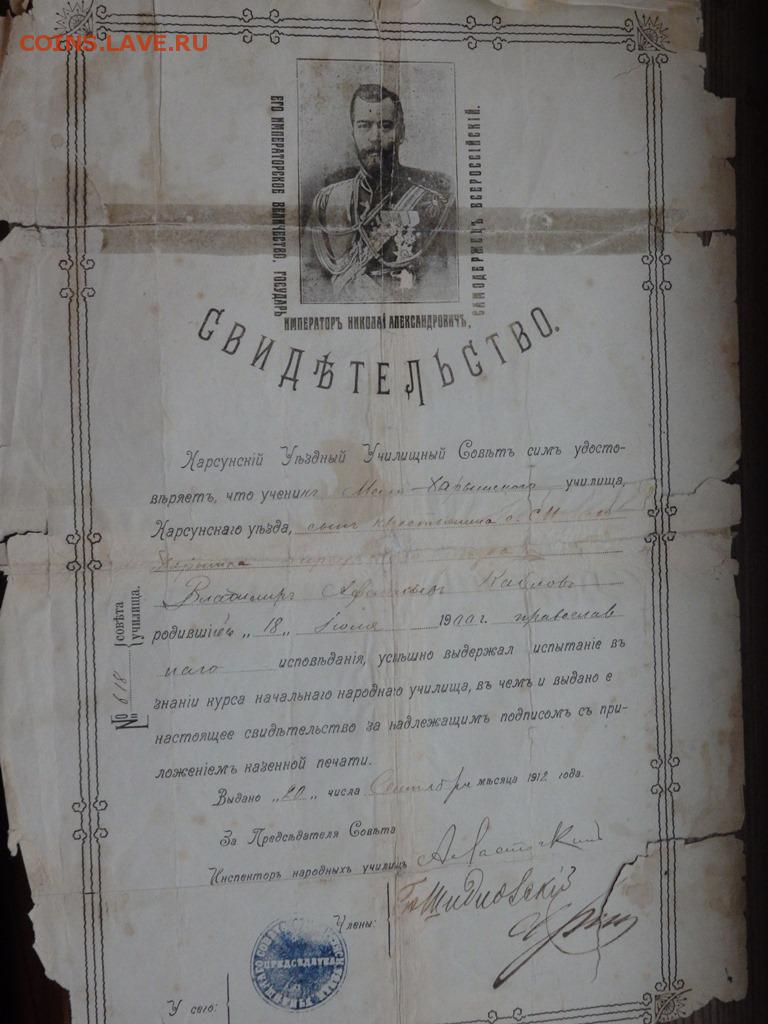 COINS.LAVE.RU
ЕГО ИМПЕРАТОРСКОЕ ВЕЛИЧЕСТВО, ГОСУДАРЬ
ИМПЕРАТОРЪ НИКОЛАЙ АЛЕКСАНДРОВИЧЪ,
САМОДЕРЖЕЦЪ ВСЕРОССІЙСКІЙ.
СВИДѢТЕЛЬСТВО.
Карсунскій Уѣздный Училищный Совѣтъ симъ удосто-
вѣряетъ, что ученикъ училища,
Карсунскаго уѣзда, сынъ крестьянина с.
Владимиръ Павловъ
родившійся „18„ Іюля 1900 г. православ
наго исповѣданія, успѣшно выдержалъ испытаніе въ
знаніи курса начальнаго народнаго училища, въ чемъ и выдано е
настоящее свидѣтельство за надлежащимъ подписомъ съ при-
ложеніемъ казенной печати.
Выдано „20„ числа Сентября мѣсяца 1912 года.
№ 618 совѣта училища.
За Предсѣдателя Совѣта
Инспекторъ народныхъ училищъ
Члены:
ПРЕДСѢДАТЕЛЯ
У сего: